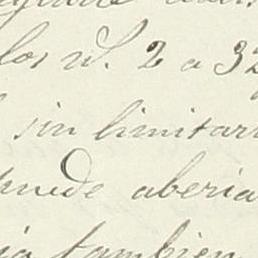 los N. 2 a 32
sin limitar
puede aberia
ia tambien